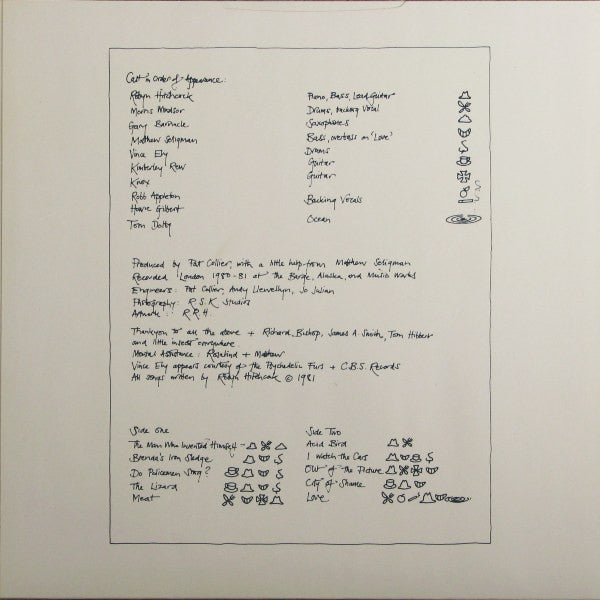 Cast in order of Appearance:
Robyn Hitchcock Piano, Bass, Lead Guitar
Morris Windsor Drums, backing Vocal
Gary Barnacle Saxophones
Matthew Seligman Bass, overbass on 'Love'
Vince Ely Drums
Kimberley Rew Guitar
Knox Guitar
Robb Appleton
Howie Gilbert Backing Vocals
Tom Dolby Ocean
Produced by Pat Collier, with a little help from Matthew Seligman
Recorded London 1980-81 at the Barge, Alaska, and Music Works
Engineers: Pat Collier, Andy Llewellyn, Jo Julian
Photography: R.S.K Studios
Artwork: R.R.H.
Thankyou to all the above + Richard Bishop, James A. Smith, Tom Hibbert
and little insects everywhere
Mental Assistance: Rosalind + Matthew
Vince Ely appears courtesy of the Psychedelic Furs + C.B.S. Records
All songs written by Robyn Hitchcock © 1981
Side one
The Man Who Invented Himself
Brenda's Iron Sledge
Do Policemen Sing?
The Lizard
Meat
Side Two
Acid Bird
I Watch the Cars
Out of the Picture
City of Shame
Love